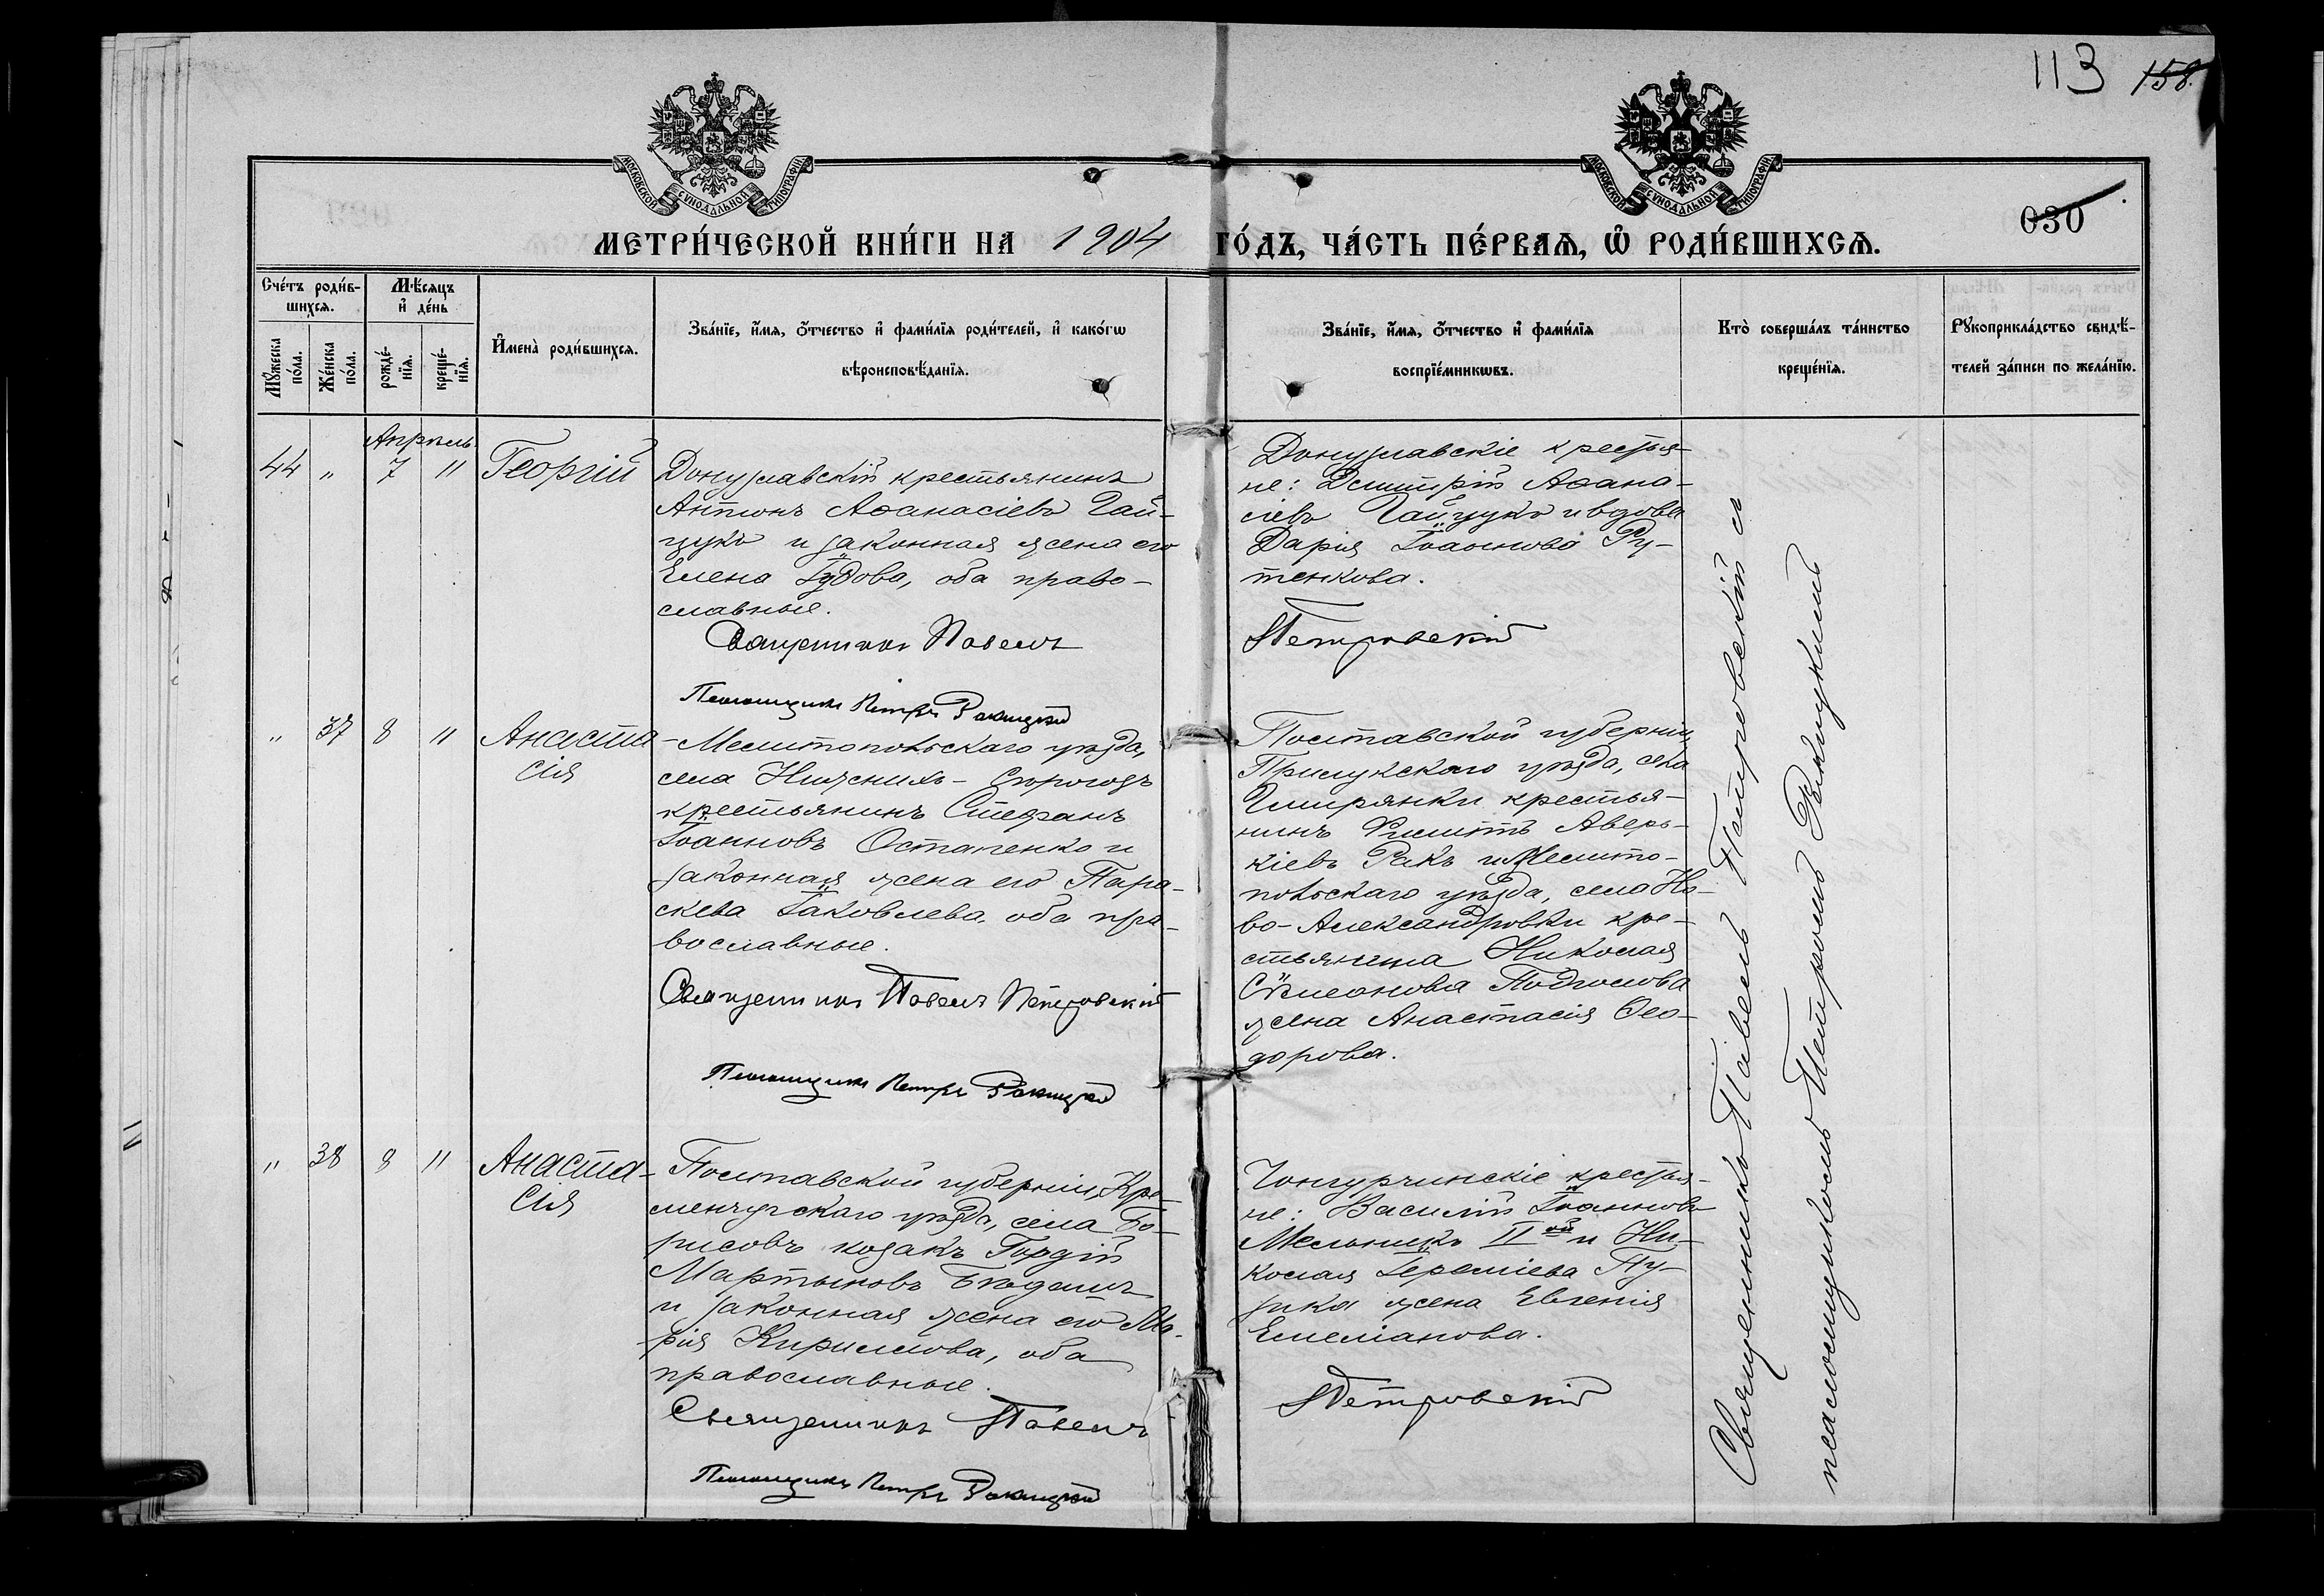 113 158.
МОСКОВСКОЙ СУНОДАЛЬНОЙ ТИПОГРАФІИ
МОСКОВСКОЙ СУНОДАЛЬНОЙ ТИПОГРАФІИ
030
МЕТРИ́ЧЕСКОЙ КНИ́ГИ НА 1904 ГО́ДЪ, ЧА́СТЬ ПЕ́РВАѦ, Ѡ РОДИ́ВШИХСѦ.
Сче́тъ роди́в-
шихсѧ.
Мꙋ́жеска по́ла.
Же́нска по́ла.
Мѣ́сяцъ
и де́нь
рожде́-
нїѧ.
креще́-
нїѧ.
И́мена̀ роди́вшихсѧ.
Зва́нїе, и́мѧ, ѻ́тчество и фами́лїѧ роди́телей, и како́гѡ
вѣроисповѣ́данїѧ.
Зва́нїе, и́мѧ, ѻ́тчество и фами́лїѧ
воспрїе́мникѡвъ.
Кто̀ соверша́лъ та́инство
креще́нїѧ.
Рꙋкоприкла́дство свидѣ́-
телей за́писи по жела́нїю.
Апрѣль
44 " 7 11 Георгій
Донузлавскій крестьянинъ
Антонъ Аѳанасіевъ Гай-
цукъ и законная жена его
Елена Іудова, оба право-
славные.
Священникъ Павелъ
Псаломщикъ Петръ Ракицкій
Донузлавскіе крестья-
не: Димитрій Аѳана-
сіевъ Гайцукъ и вдова
Дарія Іоаннова Ру-
тенкова.
Петровскій
" 37 8 11 Анаста-
сія
Мелитопольскаго уѣзда,
села Нижнихъ-Сѣрогозъ
крестьянинъ Стефанъ
Іоанновъ Остапенко и
законная жена его Пара-
скева Іаковлева, оба пра-
вославные.
Священникъ Павелъ Петровскій
Псаломщикъ Петръ Ракицкій
Полтавской губерніи,
Прилукскаго уѣзда, села
крестья-
нинъ Аверь-
кіевъ Ракъ и Мелито-
польскаго уѣзда, села Но-
во-Александровки кре-
стьянина Николая
Сѵмеонова Подголова
жена Анастасія Ѳео-
дорова.
" 38 8 11 Анаста-
сія
Полтавской губерніи, Кре-
менчугскаго уѣзда, села Бо-
рисовъ козакъ Гордій
Мартыновъ
и законная жена его Ма-
рія Кириллова, оба
православные.
Священникъ Павелъ
Псаломщикъ Петръ Ракицкій
Чонгурчинскіе крестья-
не: Василій Іоанновъ
Мельникъ II ой и Ни-
колая Іереміева Пу-
зика жена Евгенія
Емеліанова.
Петровскій
Священникъ Павелъ Петровскій съ
псаломщикомъ Петромъ Ракицкимъ